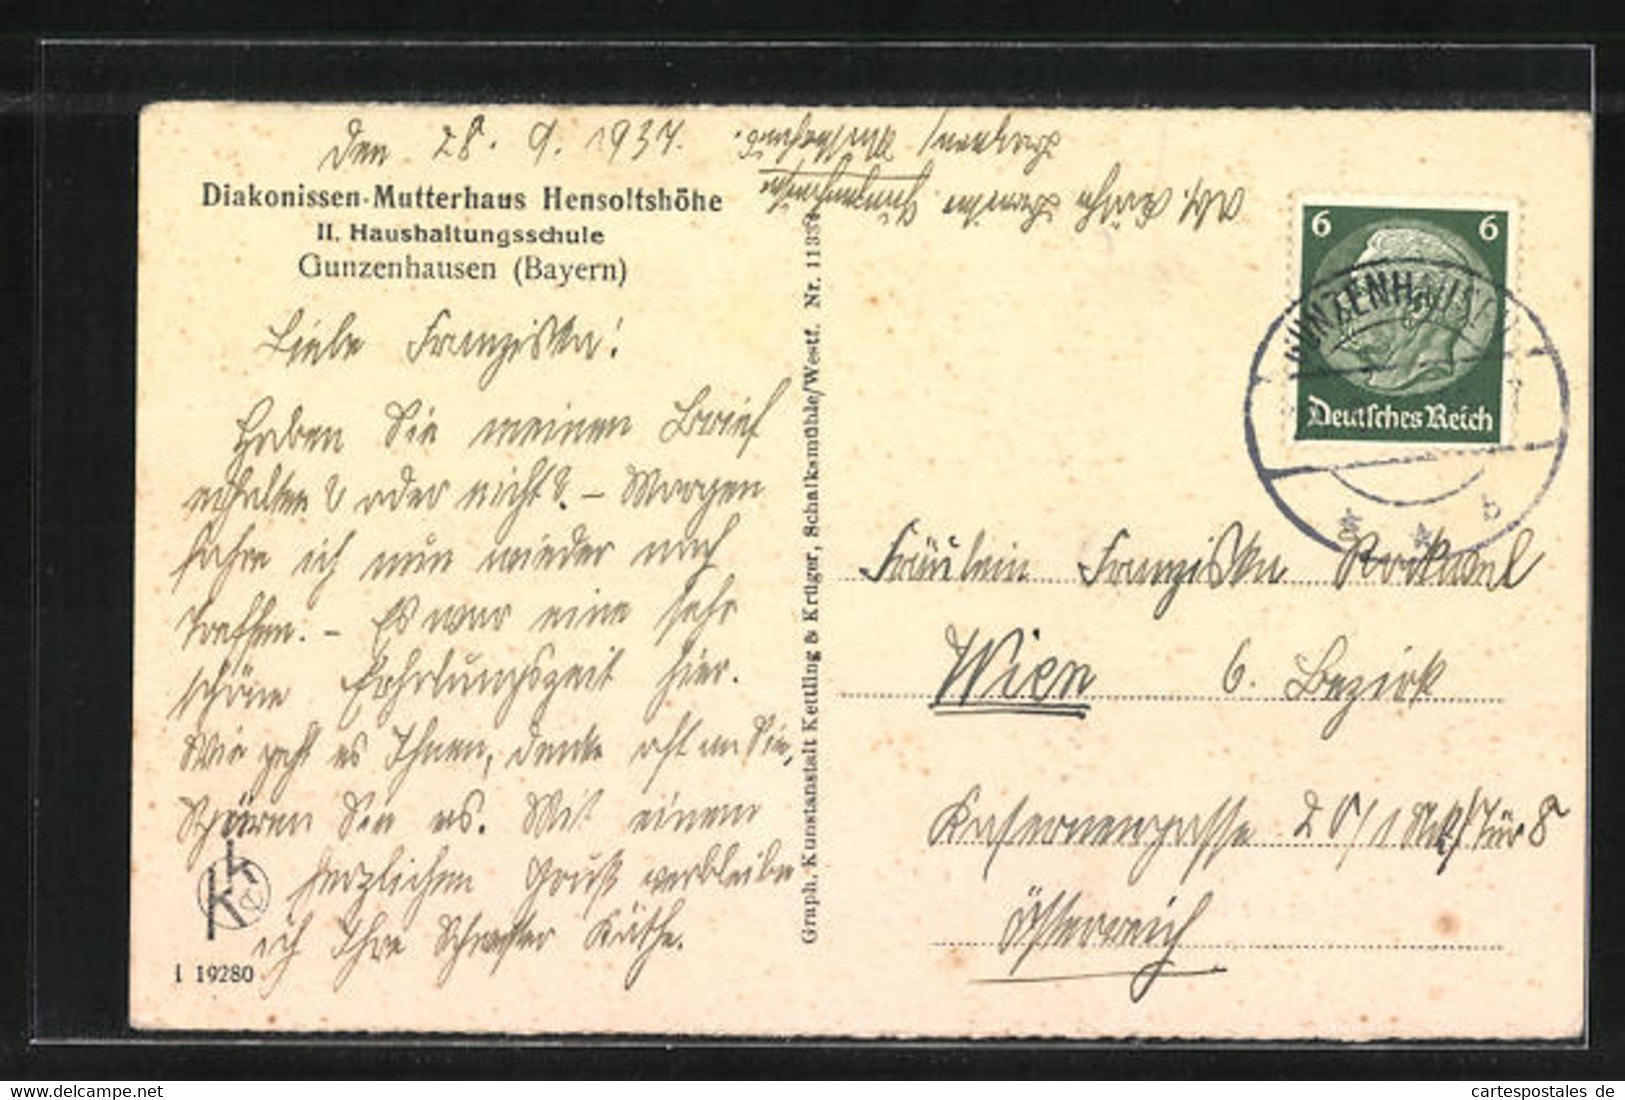 Den 28. 9. 1937.
Diakonissen-Mutterhaus Hensoltshöhe
II. Haushaltungsschule
Gunzenhausen (Bayern)
Liebe Franziska!
Haben Sie meinen Brief
erhalten? oder nicht? – Morgen
fahre ich nun wieder nach
– Es war eine sehr
schöne Erholungszeit hier.
Wie geht es Ihnen, denke oft an Sie,
Spüren Sie es. Mit einem
herzlichen Gruß verbleibe
ich Ihre Schwester Käthe.
I 19280
Graph. Kunstanstalt Kettling & Krüger, Schalksmühle/Westf. Nr. 1133
Abs. Käthe
Gunzenhausen
6 6
Deutsches Reich
GUNZENHAUSEN
b
Fräulein Franziska
Wien 6. Bezirk
Kasernengasse 20/1 /Tür 8
Österreich
cartespostales de
www.delcampe.net
yankeegirl